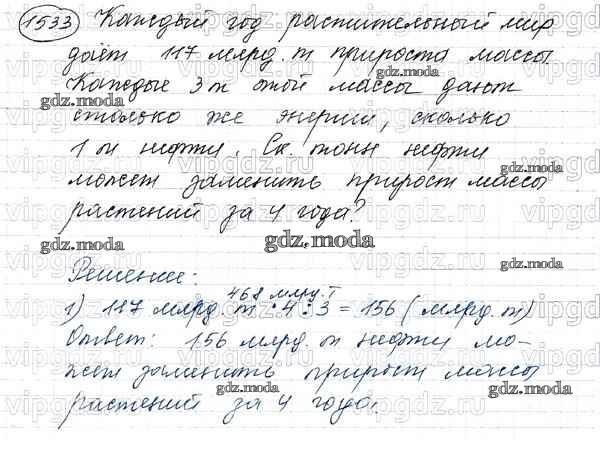 1533 Каждый год растительный мир
даёт 117 млрд. т прироста массы.
Каждые 3 т этой массы дают
столько же энергии, сколько
1 т нефти. Ск. тонн нефти
может заменить прирост массы
растений за 4 года?
gdz.moda
Решение:
468 млрд. т
1) 117 млрд. т · 4 : 3 = 156 (млрд. т)
Ответ: 156 млрд. т нефти мо-
жет заменить прирост массы
растений за 4 года.
vipgdz.ru